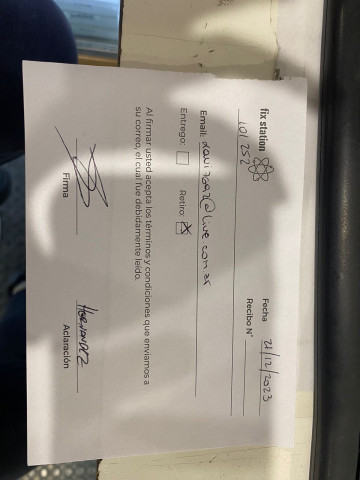 fix station
Fecha 21/12/2023
101 252
Recibo N°
Email: @live.com.ar
Entrego: Retiro: X
Al firmar usted acepta los términos y condiciones que enviamos a
su correo, el cual fue debidamente leído.
HERNANDEZ
Firma Aclaración